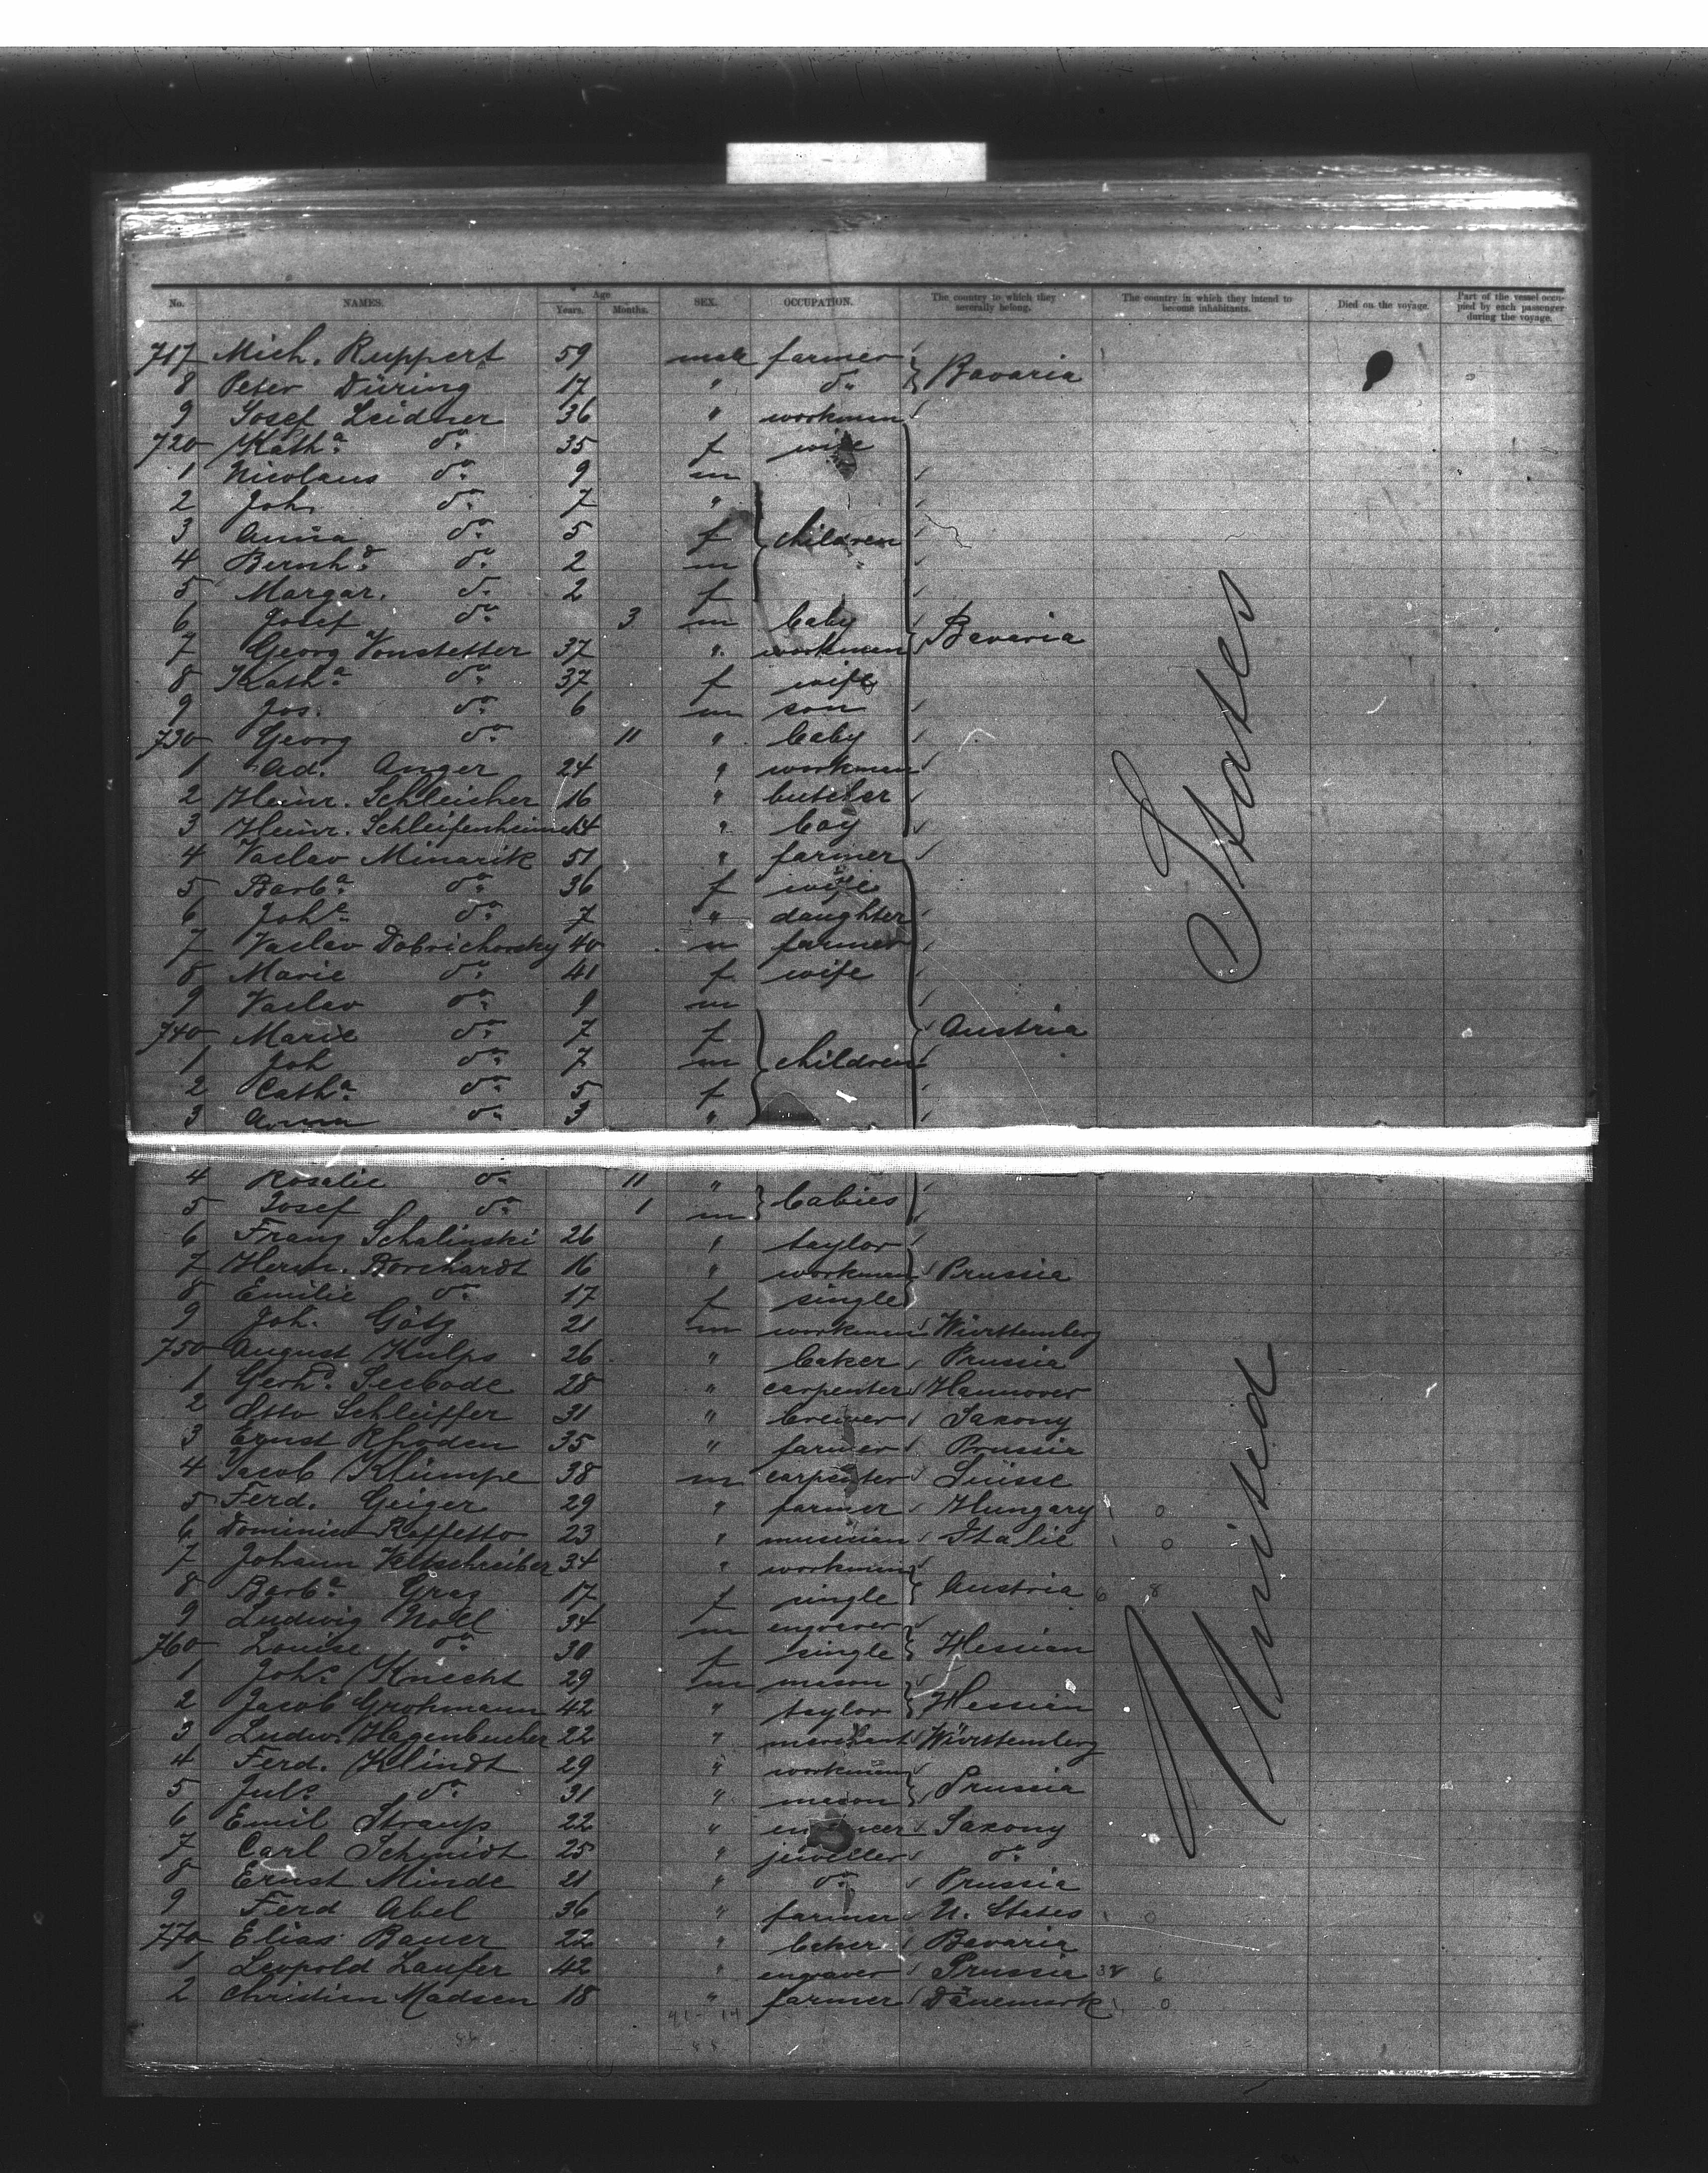 No. NAMES. Age Years. Months. SEX. OCCUPATION. The country to which they severally belong. The country in which they intend to become inhabitants. Died on the voyage. Part of the vessel occupied by each passenger during the voyage.
717 Mich. Ruppert 59 male farmer
8 Peter Düring 17 " do. Bavaria
9 Josef Leidner 36 " workman
720 Katha. do. 35 f wife
1 Nicolaus do. 9 m
2 Joh. do. 7 "
3 Anna do. 5 f children
4 Bernhd. do. 2 m
5 Margar. do. 2 f
6 Josef do. 3 m baby
7 Georg Vonstetter 37 " workman Bavaria
8 Katha. do. 37 f wife
9 Jos. do. 6 m son
730 Georg do. 11 " baby
1 Ad. Anger 24 " workman
2 Heinr. Schleicher 16 " butcher
3 Heinr. Schleifenheimer 14 " boy
4 Vaclav Minarik 51 " farmer
5 Barba. do. 36 f wife
6 Johe. do. 7 " daughter
7 Vaclav Dobrichovsky 40 m farmer
8 Marie do. 41 f wife
9 Vaclav do. 9 m
740 Marie do. 7 f Austria
1 Joh do. 7 m children
2 Catha. do. 5 f
3 Anna do. 3 "
4 Rosalie do. 11 "
5 Josef do. 1 m babies
6 Franz Schalinski 26 " taylor
7 Herm. Borchardt 16 " workman Prussia
8 Emilie do. 17 f single
9 Joh. Götz 21 m workman Württemberg
750 August Kulps 26 " baker Prussia
1 Gerhd. Seebode 28 " carpenter Hannover
2 Otto Schleiffer 31 " brewer Saxony
3 Ernst Rhoden 35 " farmer Prussia
4 Jacob Klümpe 38 m carpenter Suisse
5 Ferd. Geiger 29 " farmer Hungary 0
6 Dominico Raffetto 23 " musician Italie 0
7 Johann Veltschreiber 34 " workman
8 Barba. Graz 17 f single Austria 6 8
9 Ludwig Noll 34 m engraver
760 Louise do. 30 f single Hessian
1 Johs. Knecht 29 m mason
2 Jacob Grohmann 42 " taylor Hessian
3 Ludw. Hagenbucher 22 " merchant Württemberg
4 Ferd. Klindt 29 " workman
5 Juls. do. 31 " mason Prussia
6 Emil Straups 22 " Saxony
7 Carl Schmidt 25 " jeweller do.
8 Ernst Minde 21 " do. Prussia
9 Ferd Abel 36 " farmer U. States 0
770 Elias Bauer 22 " baker Bavaria
1 Leopold Laufer 42 " engraver Prussia 38 6
2 Christian Madsen 18 " farmer Dänemark 0
United States